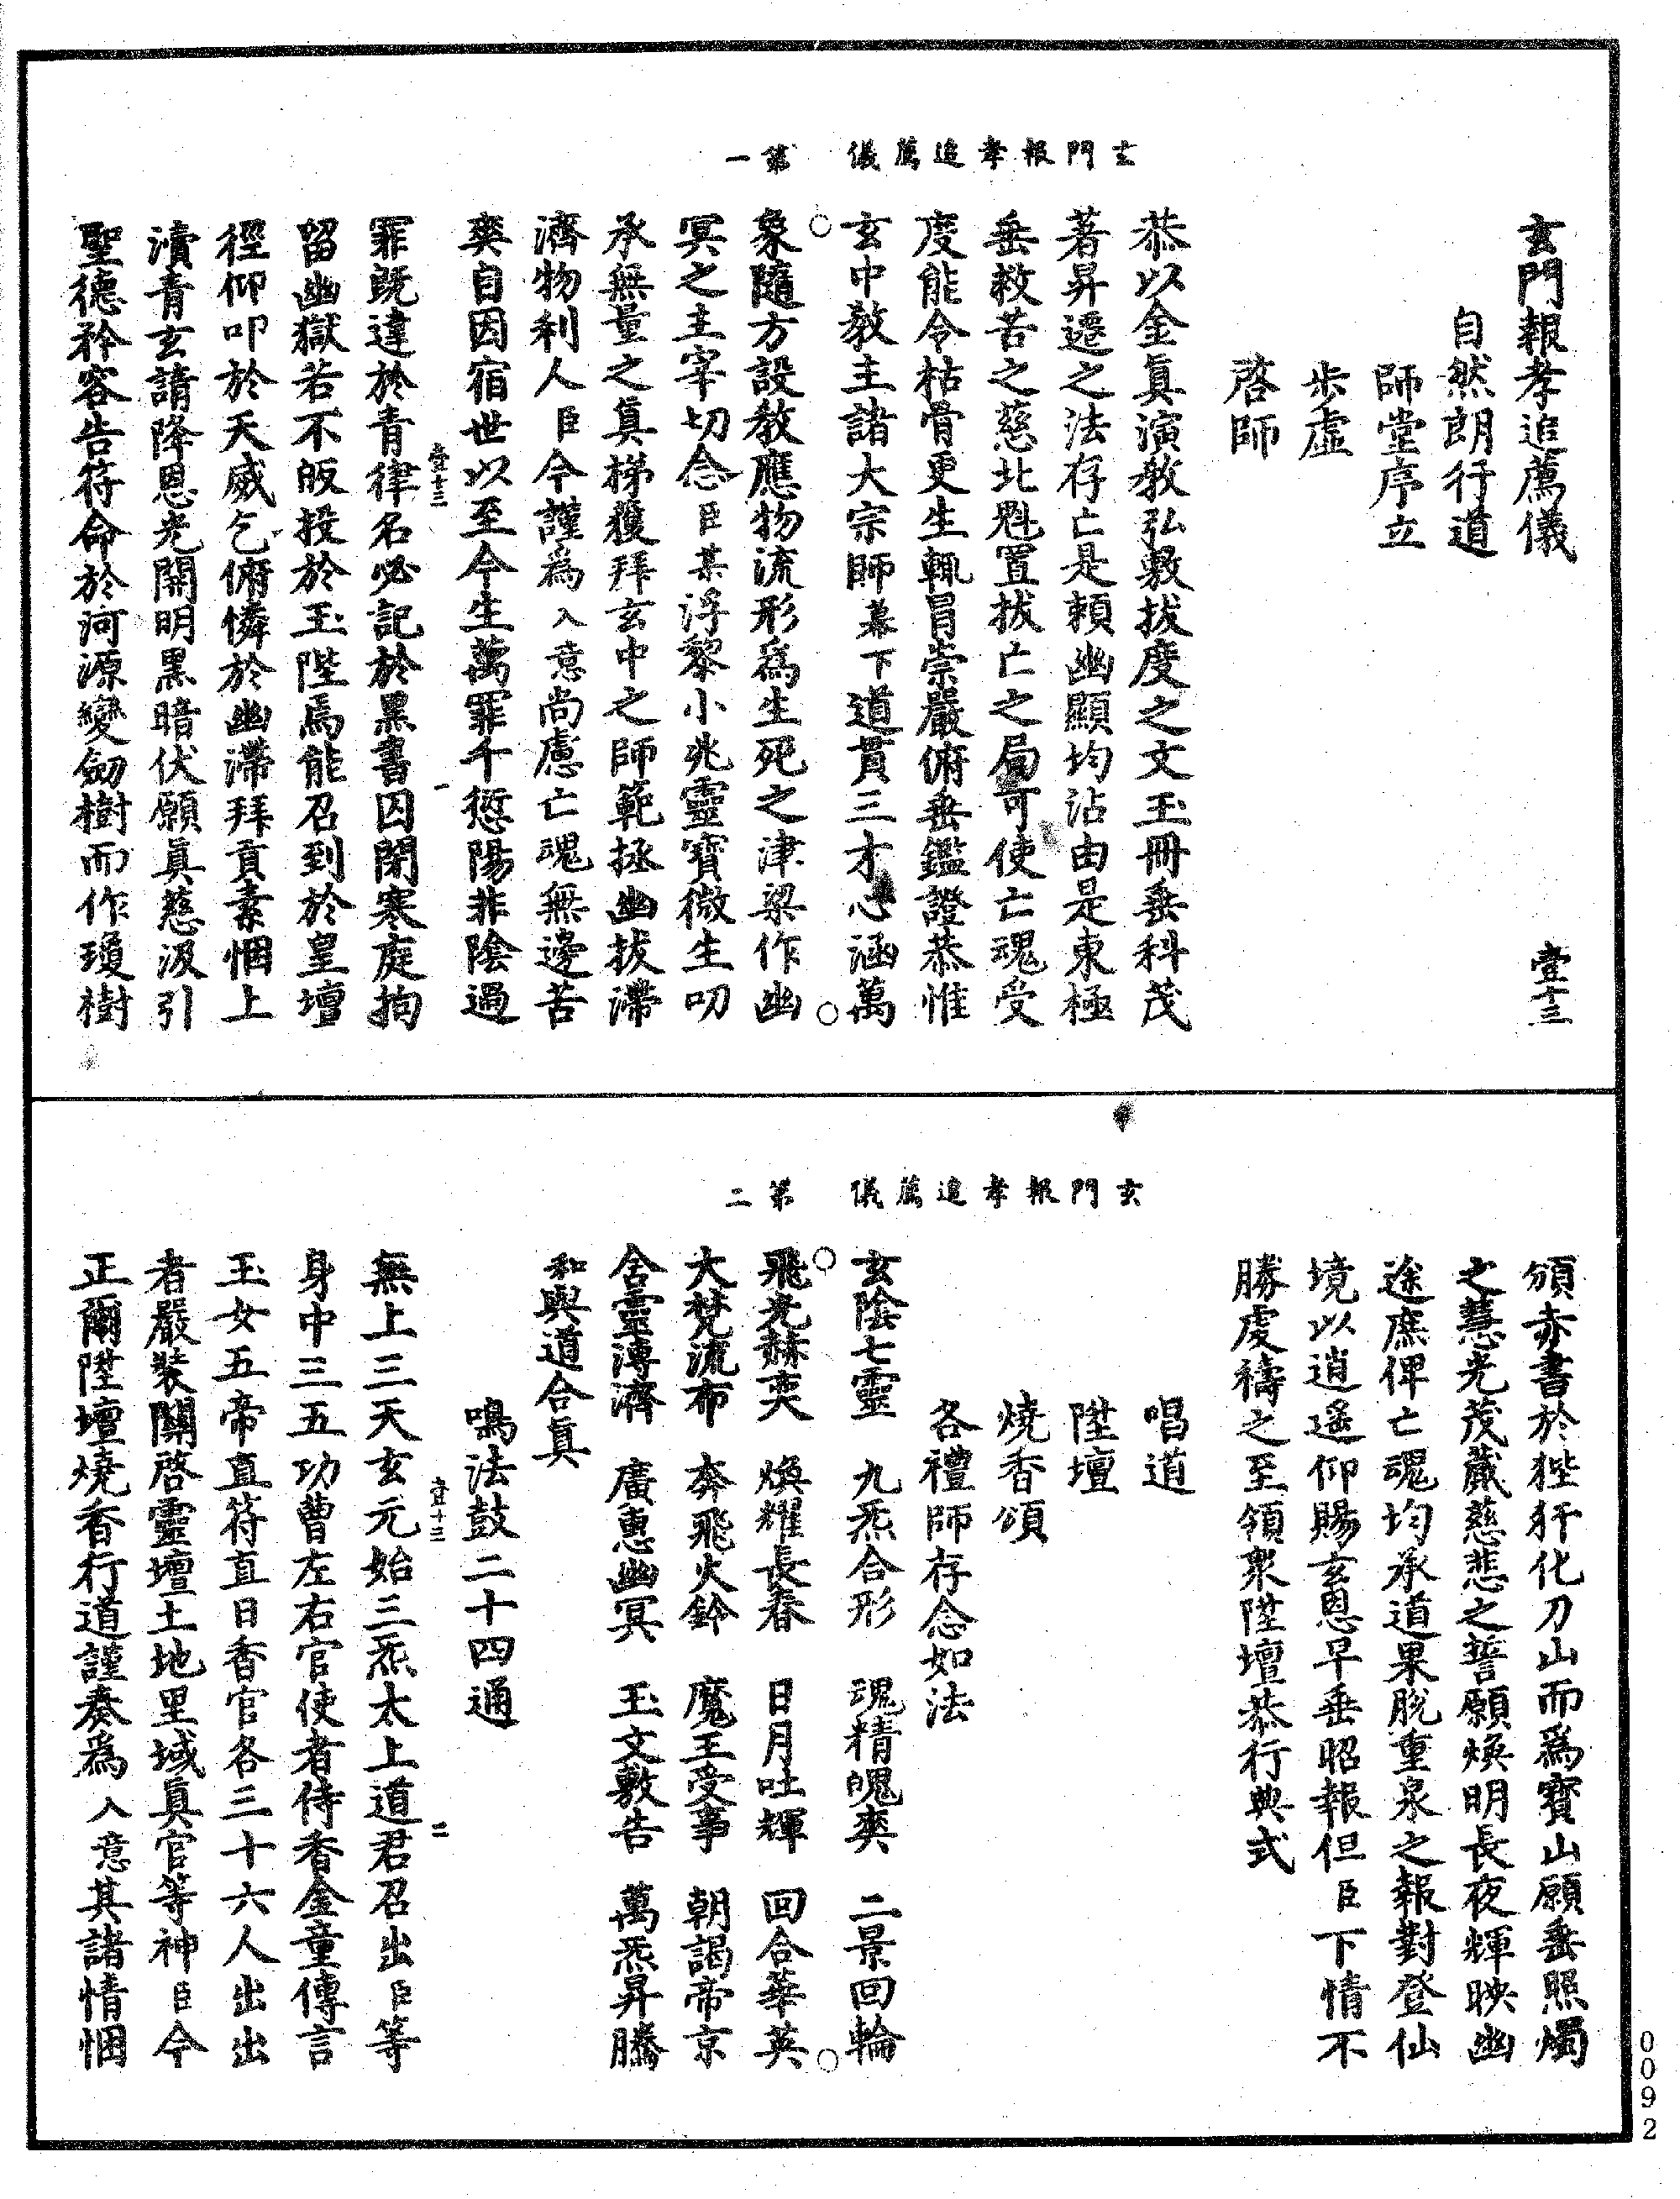 玄門報孝追薦儀　第一
玄門報孝追薦儀　壹十三
自然朗行道
師堂序立
步虛
啓師
恭以金眞演敎弘敷拔度之文玉冊垂科茂
著昇遷之法存亡是賴幽顯均沾由是東極
垂救苦之慈北魁置拔亡之局可使亡魂受
度能令枯骨更生輒冒崇嚴俯垂鑑證恭惟
玄中敎主諸大宗師幕下道貫三才心涵萬
象隨方設敎應物流形爲生死之津梁作幽
冥之主宰切念臣某浮黎小兆靈寶微生叨
承無量之眞梯獲拜玄中之師範拯幽拔滯
濟物利人臣今謹爲入意尚慮亡魂無邊苦
爽自因宿世以至今生萬罪千愆陽非陰過
壹十三　一
罪旣違於青律名必記於黑書囚閉寒庭拘
留幽獄若不皈投於玉陛焉能召到於皇壇
徑仰叩於天威乞俯憐於幽滯拜貢素悃上
瀆青玄請降恩光開明黑暗伏願眞慈汲引
聖德矜容告符命於河源變劒樹而作瓊樹
玄門報孝追薦儀　第二
頒赤書於狴犴化刀山而爲寳山願垂照燭
之慧光茂葳慈悲之誓願煥明長夜輝映幽
途庶俾亡魂均承道果脫重泉之報對登仙
境以逍遙仰賜玄恩早垂昭報但臣下情不
勝虔禱之至領衆陞壇恭行典式
唱道
陞壇
燒香頌
各禮師存念如法
玄陰七靈　九炁合形　魂精魄爽　二景回輪
飛光赫奕　煥耀長春　日月吐輝　回合華英
大梵流布　奔飛火鈴　魔王受事　朝謁帝京
含靈溥濟　廣惠幽冥　玉文敷告　萬炁昇騰
和與道合眞
鳴法鼓二十四通
壹十三　二
無上三天玄元始三炁太上道君召出臣等
身中三五功曹左右官使者侍香金童傳言
玉女五帝直符直日香官各三十六人出出
者嚴裝關啓靈壇土地里域眞官等神臣今
正爾陞壇燒香行道謹奏爲入意其諸情悃
0092